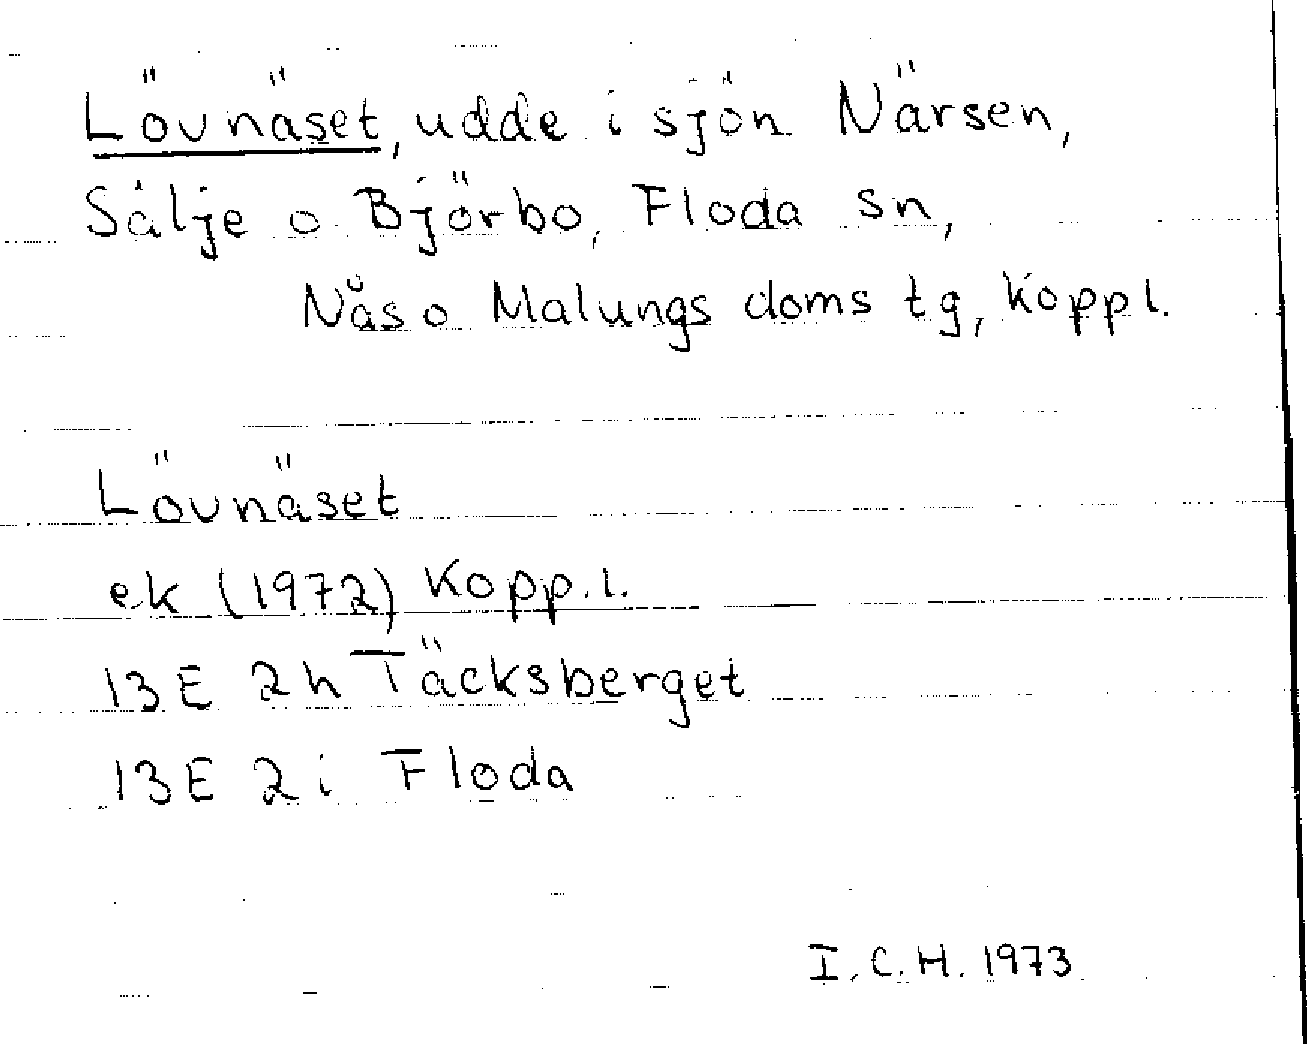 Lövnäset, udde i sjön Närsen,
Sälje o Björbo, Floda sn,
Nås o Malungs doms tg, Koppl.
Lövnäset
ek (1972) Kopp.l.
13E 2h Täcksberget
13E 2i Floda
I.C.H. 1973